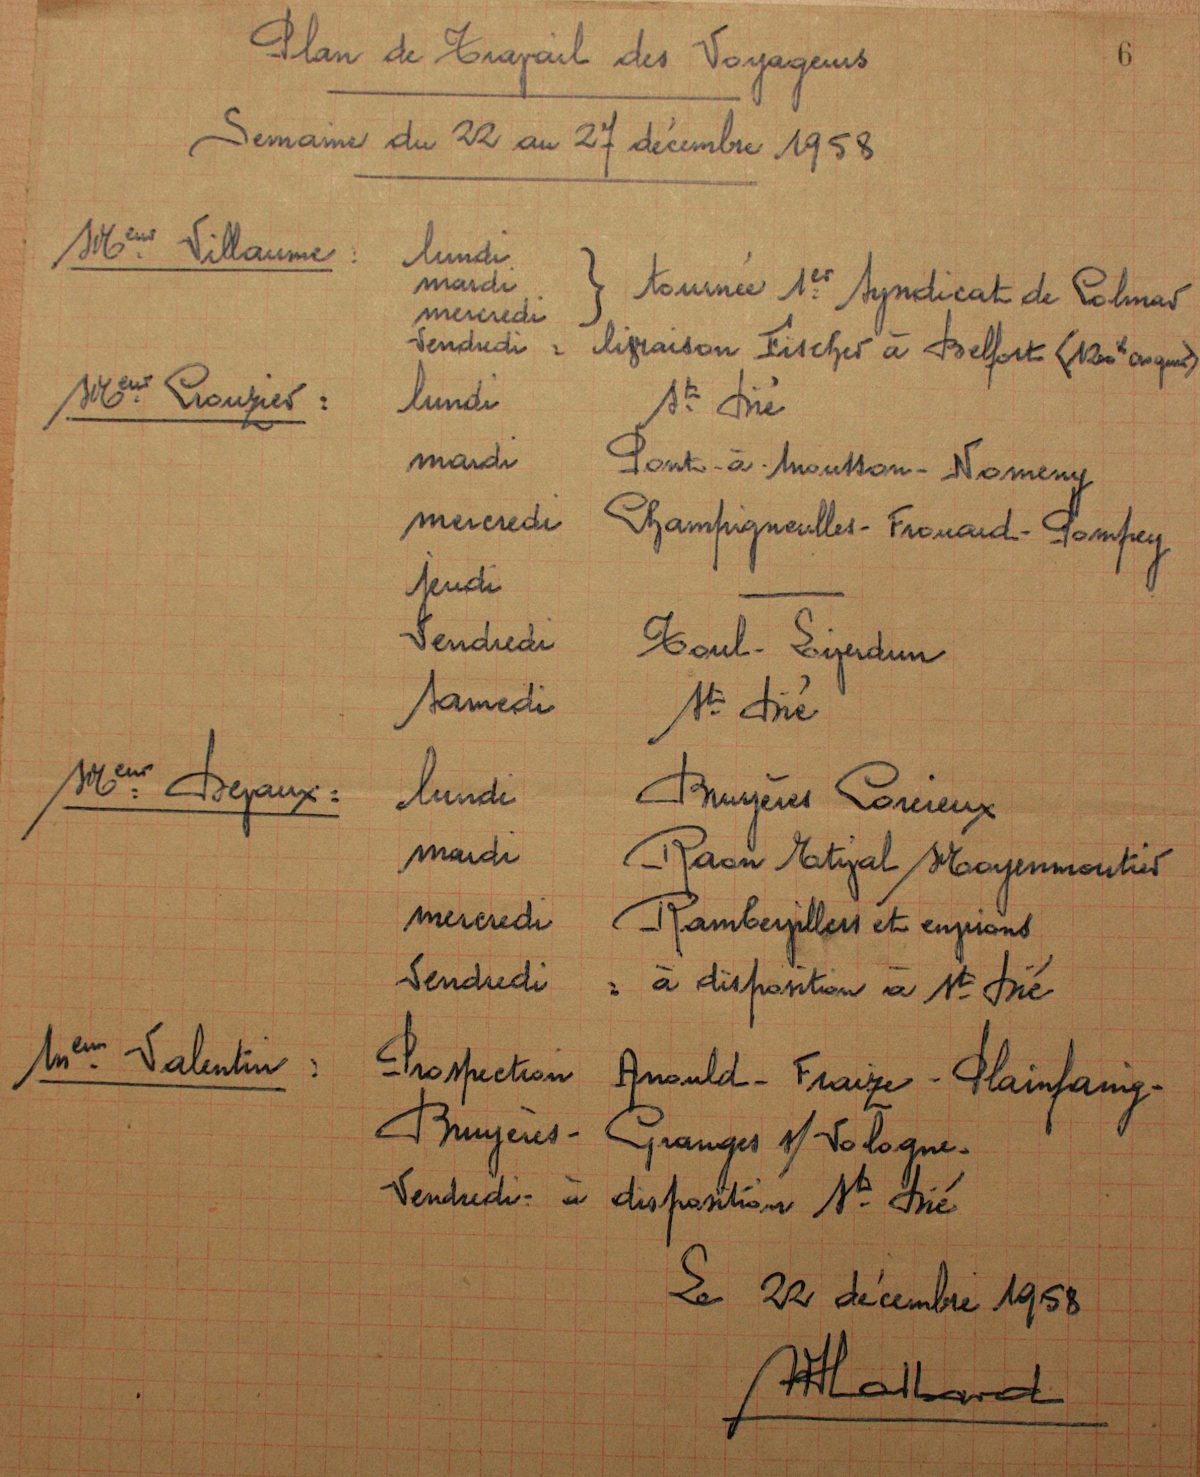 6
Plan de Travail des Voyageurs
Semaine du 22 au 27 décembre 1958
Meur Villaume : lundi
mardi } tournée 1er Syndicat de Colmar
mercredi
Vendredi = livraison Fischer à Belfort (1200k
Meur Crouzier : lundi St Dié
mardi Pont-à-Mousson - Nomeny
mercredi Champigneulles - Frouard - Pompey
jeudi —
Vendredi Toul - Liverdun
Samedi St Dié
Meur Dejaux : lundi Bruyères Corcieux
mardi Raon Etival Moyenmoutier
mercredi Rambervillers et environs
Vendredi = à disposition à St Dié
Meur Valentin : Prospection Anould - Fraize - Plainfaing -
Bruyères - Granges s/ Vologne.
Vendredi - à disposition St Dié
Le 22 décembre 1958